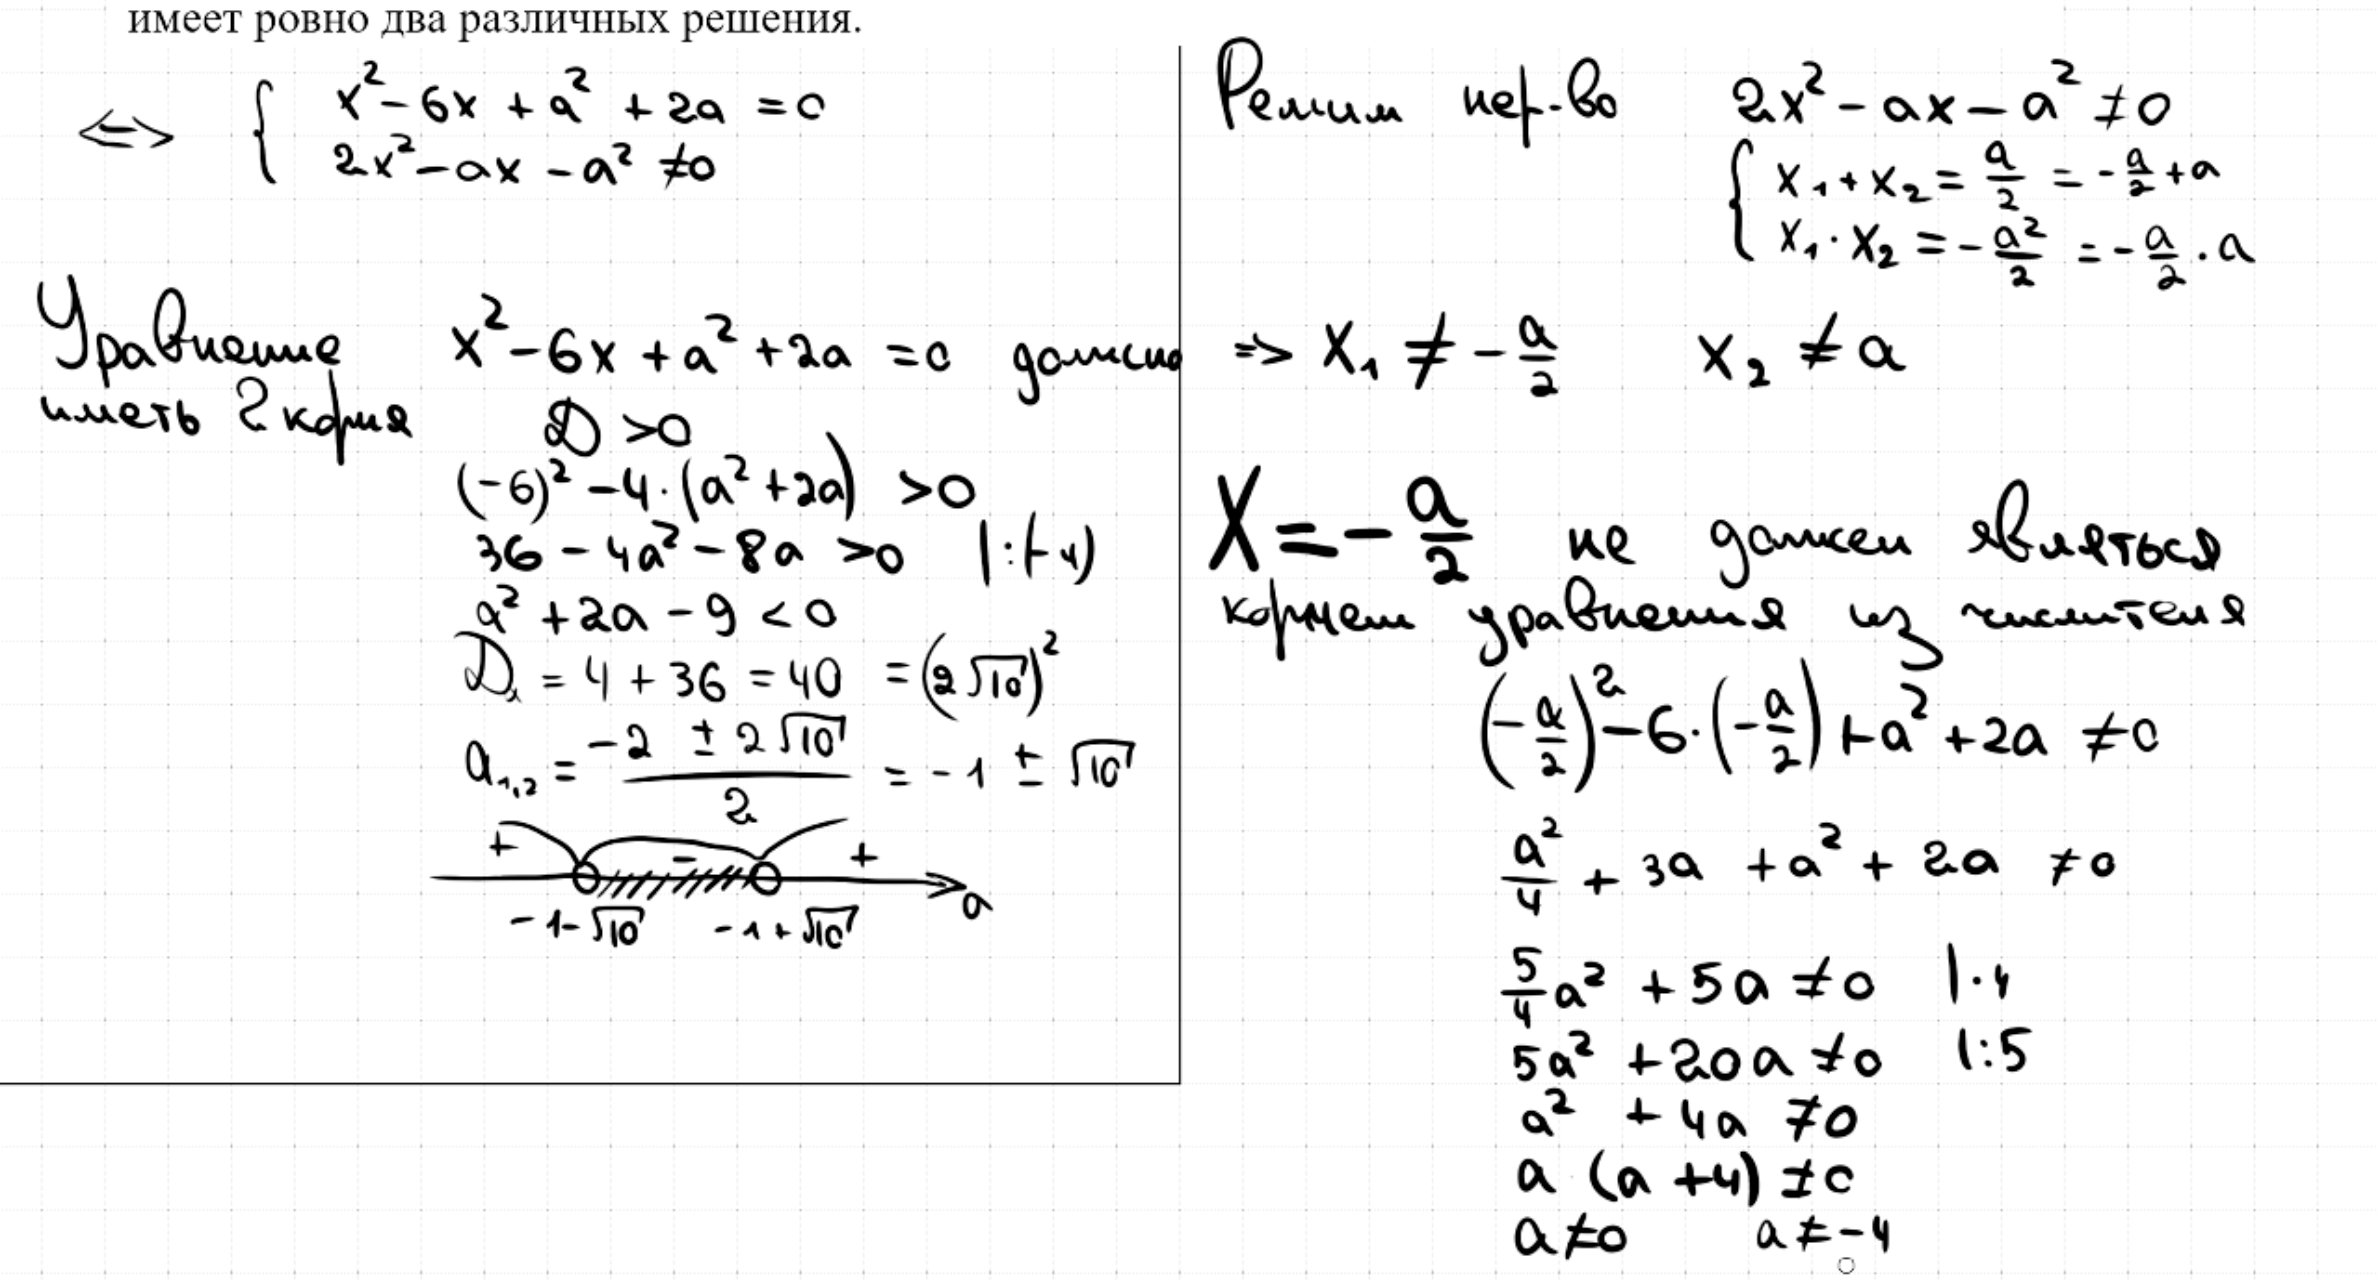 имеет ровно два различных решения.
⟺ { x² - 6x + a² + 2a = 0
2x² - ax - a² ≠ 0
Уравнение x² - 6x + a² + 2a = 0 должно
иметь 2 корня D > 0
(-6)² - 4·(a² + 2a) > 0
36 - 4a² - 8a > 0 |:(-4)
a² + 2a - 9 < 0
D₁ = 4 + 36 = 40 = (2√10)²
a₁,₂ = (-2 ± 2√10)/2 = -1 ± √10
+ - + a
-1-√10 -1+√10
Решим нер-во 2x² - ax - a² ≠ 0
{ x₁ + x₂ = a/2 = -a/2 + a
x₁ · x₂ = -a²/2 = -a/2 · a
=> x₁ ≠ -a/2 x₂ ≠ a
X = -a/2 не должен являться
корнем уравнения из числителя
(-a/2)² - 6·(-a/2) + a² + 2a ≠ 0
a²/4 + 3a + a² + 2a ≠ 0
5/4 a² + 5a ≠ 0 |·4
5a² + 20a ≠ 0 |:5
a² + 4a ≠ 0
a (a + 4) ≠ 0
a ≠ 0 a ≠ -4